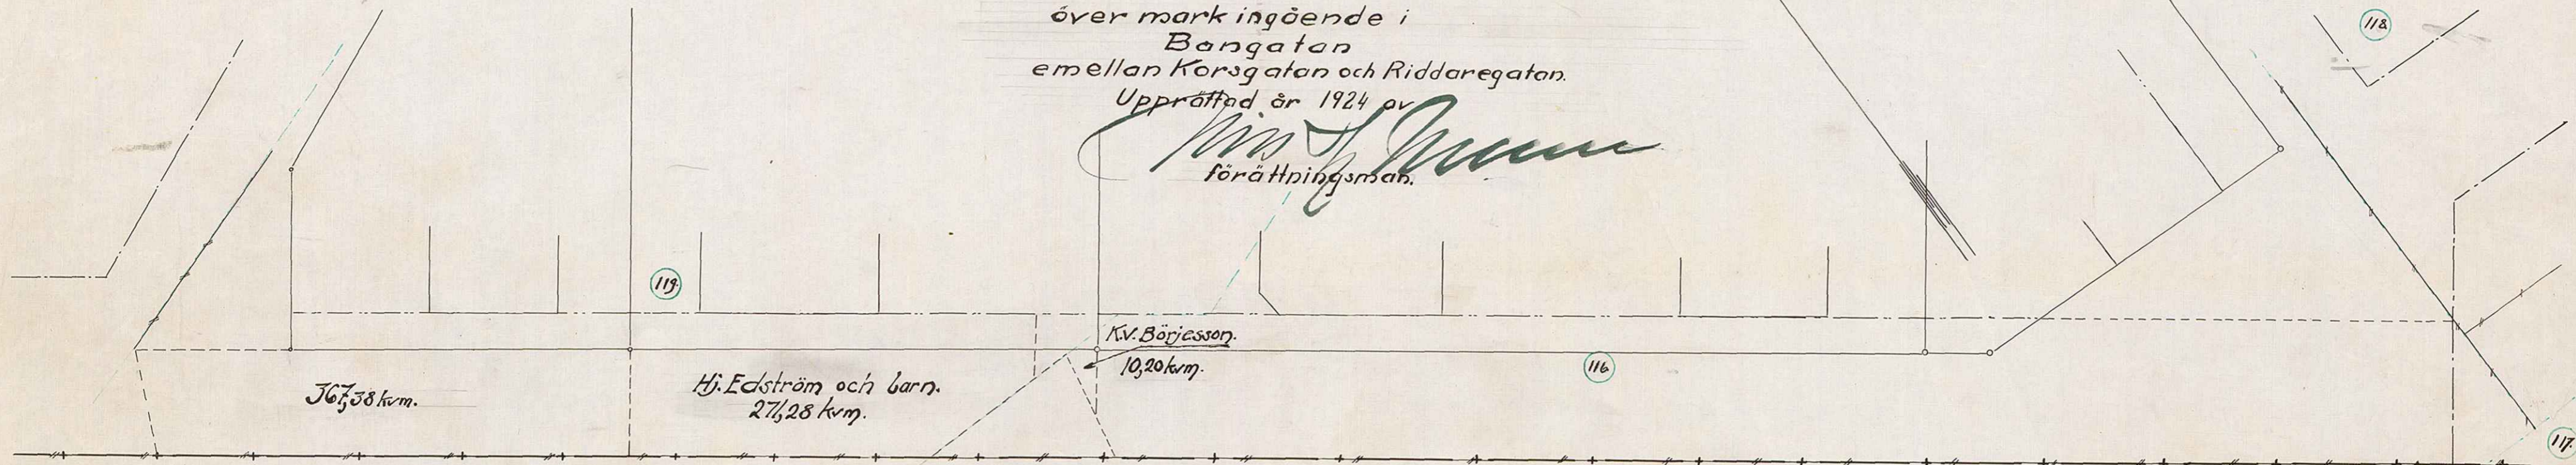 över mark ingående i
Bangatan
emellan Korsgatan och Riddaregatan.
Upprättad år 1924 av
förättningsman.
118
119
K.V. Börjesson.
10,20 kvm.
116
Hj. Edström och barn.
271,28 kvm.
367,38 kvm.
117